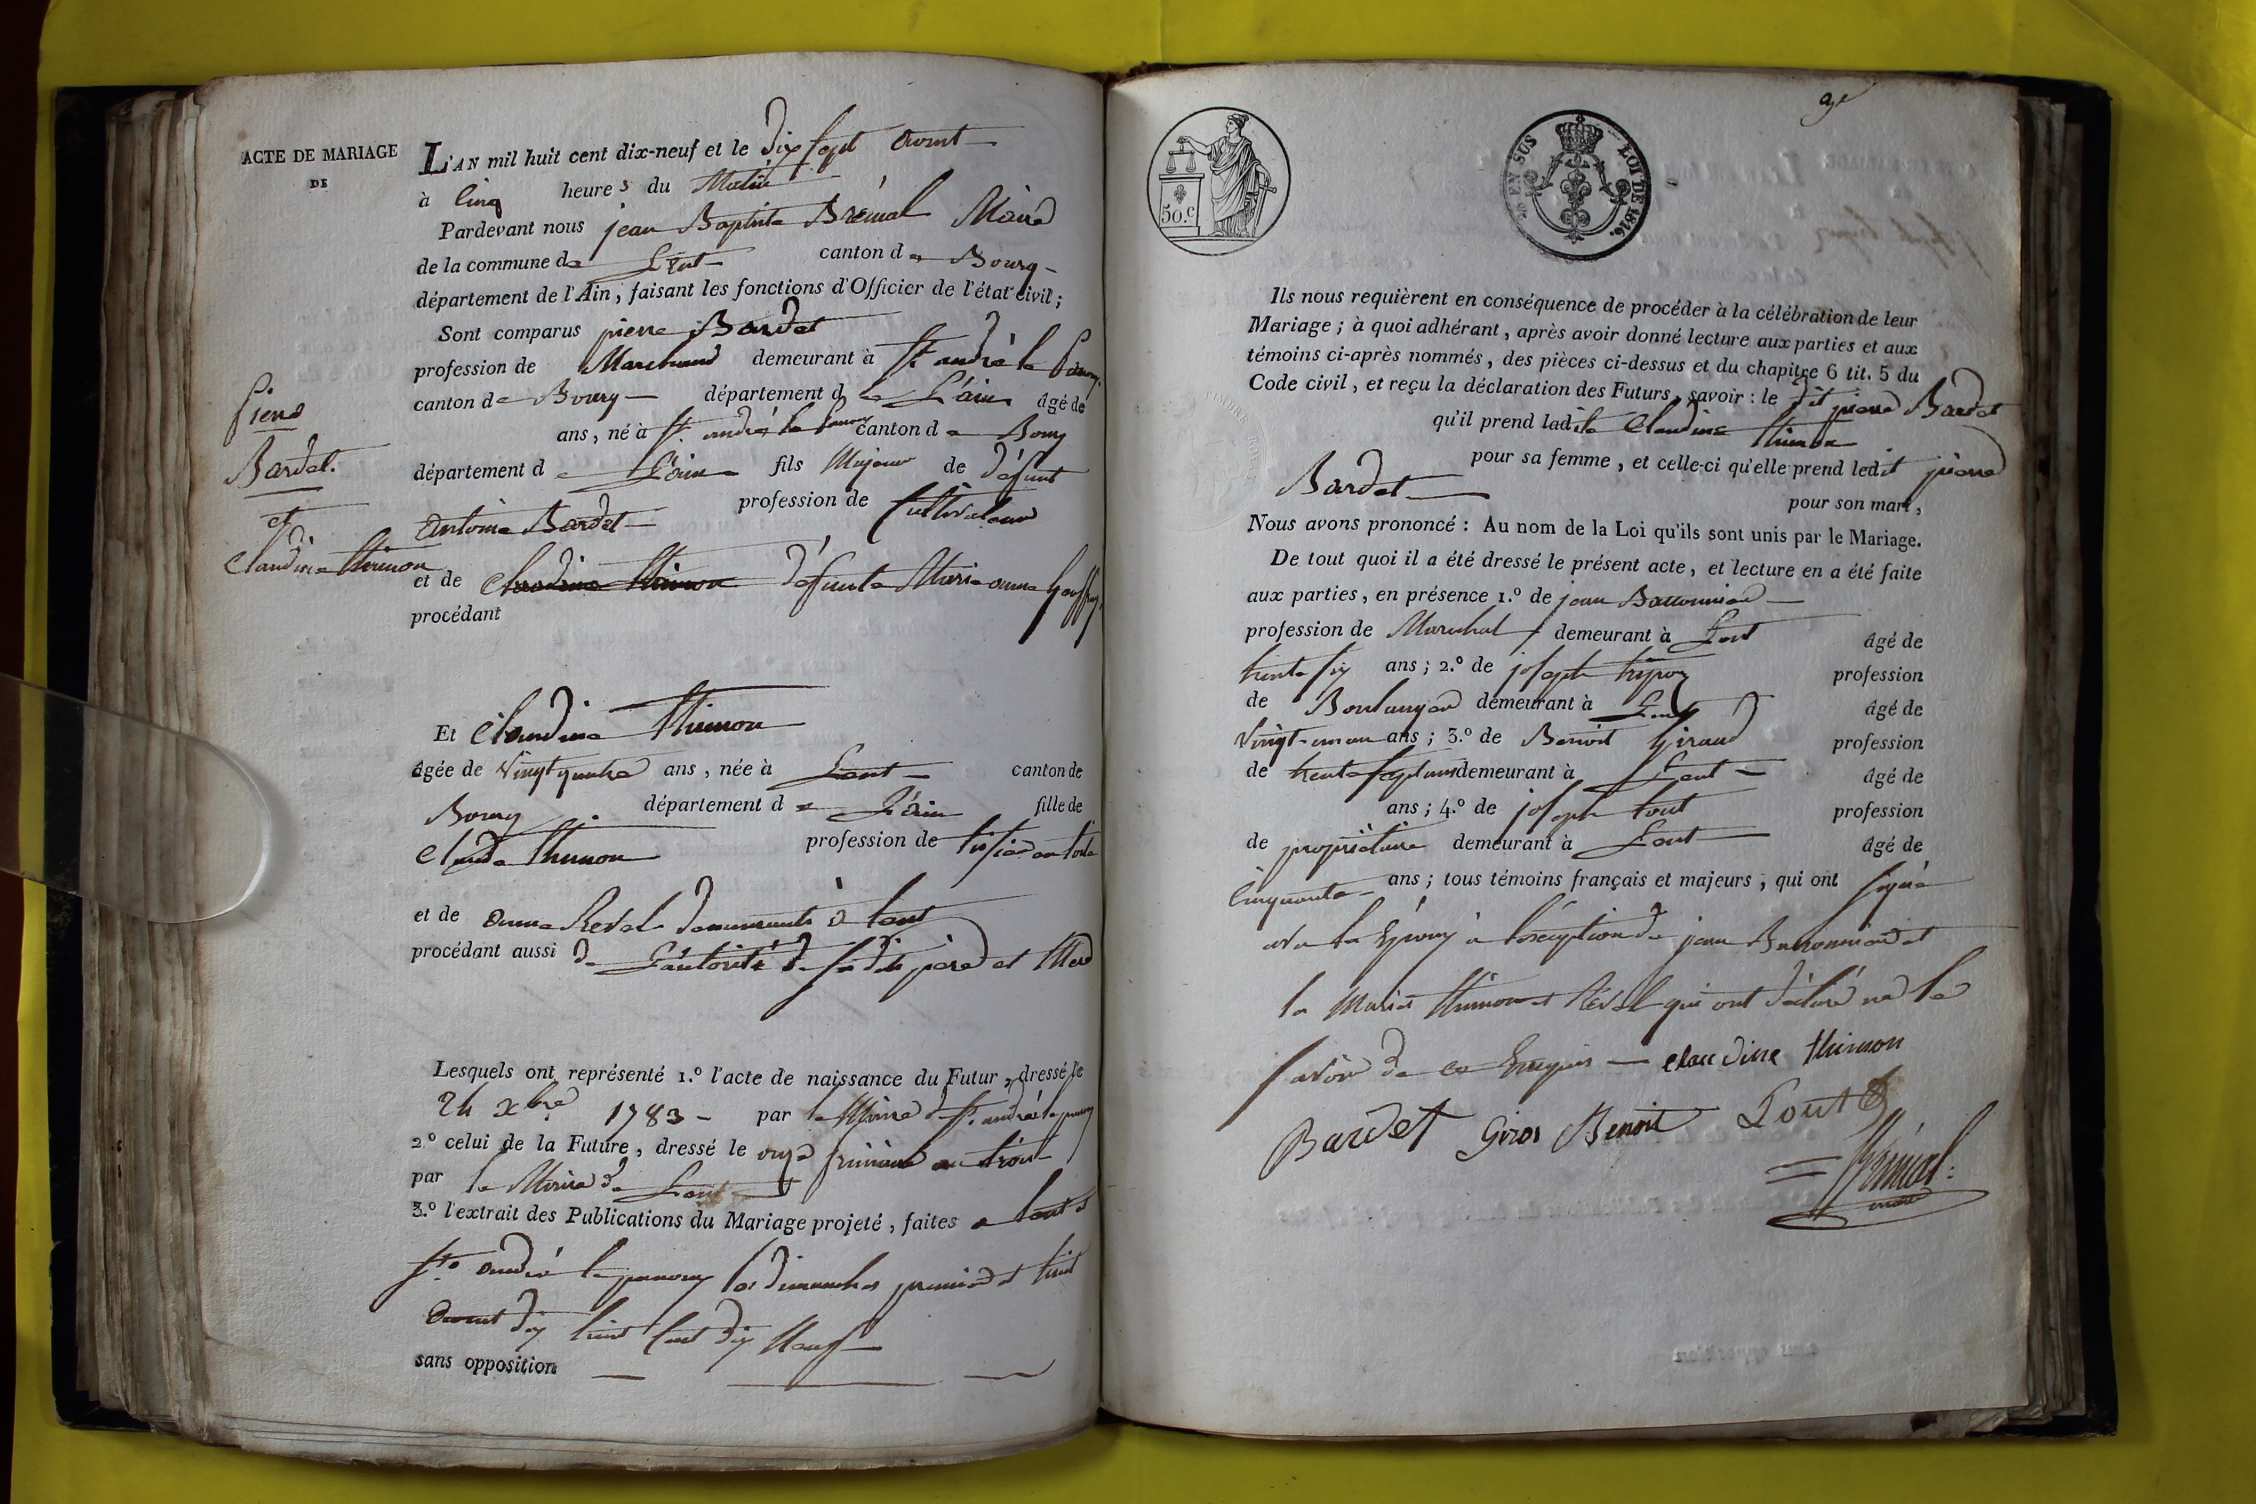 ACTE DE MARIAGE
DE
Pierre
Bardet.
et
Claudine thimon
L'AN mil huit cent dix-neuf et le dix sept Avout
à Cinq heures du Matin
Pardevant nous jean Baptiste Brémal Maire
de la commune de Lent canton de Bourg
département de l'Ain, faisant les fonctions d'Officier de l'état civil;
Sont comparus pierre Bardet
profession de Marchand demeurant à St. andré le panoux
canton de Bourg département de L'ain âgé de
ans, né à St. andré le panoux canton de Bourg
département de L'ain fils Majeur de défunt
Antoine Bardet profession de Cultivateur
et de Claudine thimon défunte Marie anne
procédant
Et Claudine thimon
âgée de vingt quatre ans, née à Lent canton de
Bourg département de L'ain fille de
Claude thimon profession de tissier en toile
et de anne Revel demeurants à Lent
procédant aussi de L'autorité de ses dits père et Mere
Lesquels ont représenté 1.º l'acte de naissance du Futur, dressé le
24 xbre 1783 par le Maire de St. andré le panoux
2º celui de la Future, dressé le onze frimaire an trois
par le Maire de Lent
3.º l'extrait des Publications du Mariage projeté, faites a Lent et
St. André le panoux les dimanches premier et huit
Avout dix huit Cent dix Neuf
sans opposition
50.C
EN SUS
LOI DE 1816.
TIMBRE ROYAL
Ils nous requièrent en conséquence de procéder à la célébration de leur
Mariage; à quoi adhérant, après avoir donné lecture aux parties et aux
témoins ci-après nommés, des pièces ci-dessus et du chapitre 6 tit. 5 du
Code civil, et reçu la déclaration des Futurs, savoir: le dit pierre Bardet
qu'il prend ladite Claudine thimon
pour sa femme, et celle-ci qu'elle prend ledit pierre
Bardet pour son mari,
Nous avons prononcé: Au nom de la Loi qu'ils sont unis par le Mariage.
De tout quoi il a été dressé le présent acte, et lecture en a été faite
aux parties, en présence 1.º de jean Barronnier
profession de Marechal demeurant à Lent âgé de
trente six ans; 2.º de joseph profession
de Boulanger demeurant à Lent âgé de
vingt-un ans; 3.º de Benoit Giraud profession
de trente sept ans demeurant à Lent âgé de
ans; 4.º de joseph tout profession
de propriétaire demeurant à Lent âgé de
Cinquante ans; tous témoins français et majeurs, qui ont signé
avec les Epoux à l'éxception de jean Barronnier et
les Mariés thimon et Revel qui ont déclaré ne le
savoir de ce Enquis claudine thimon
Bardet Giros Benoit tout
Brémal
maire